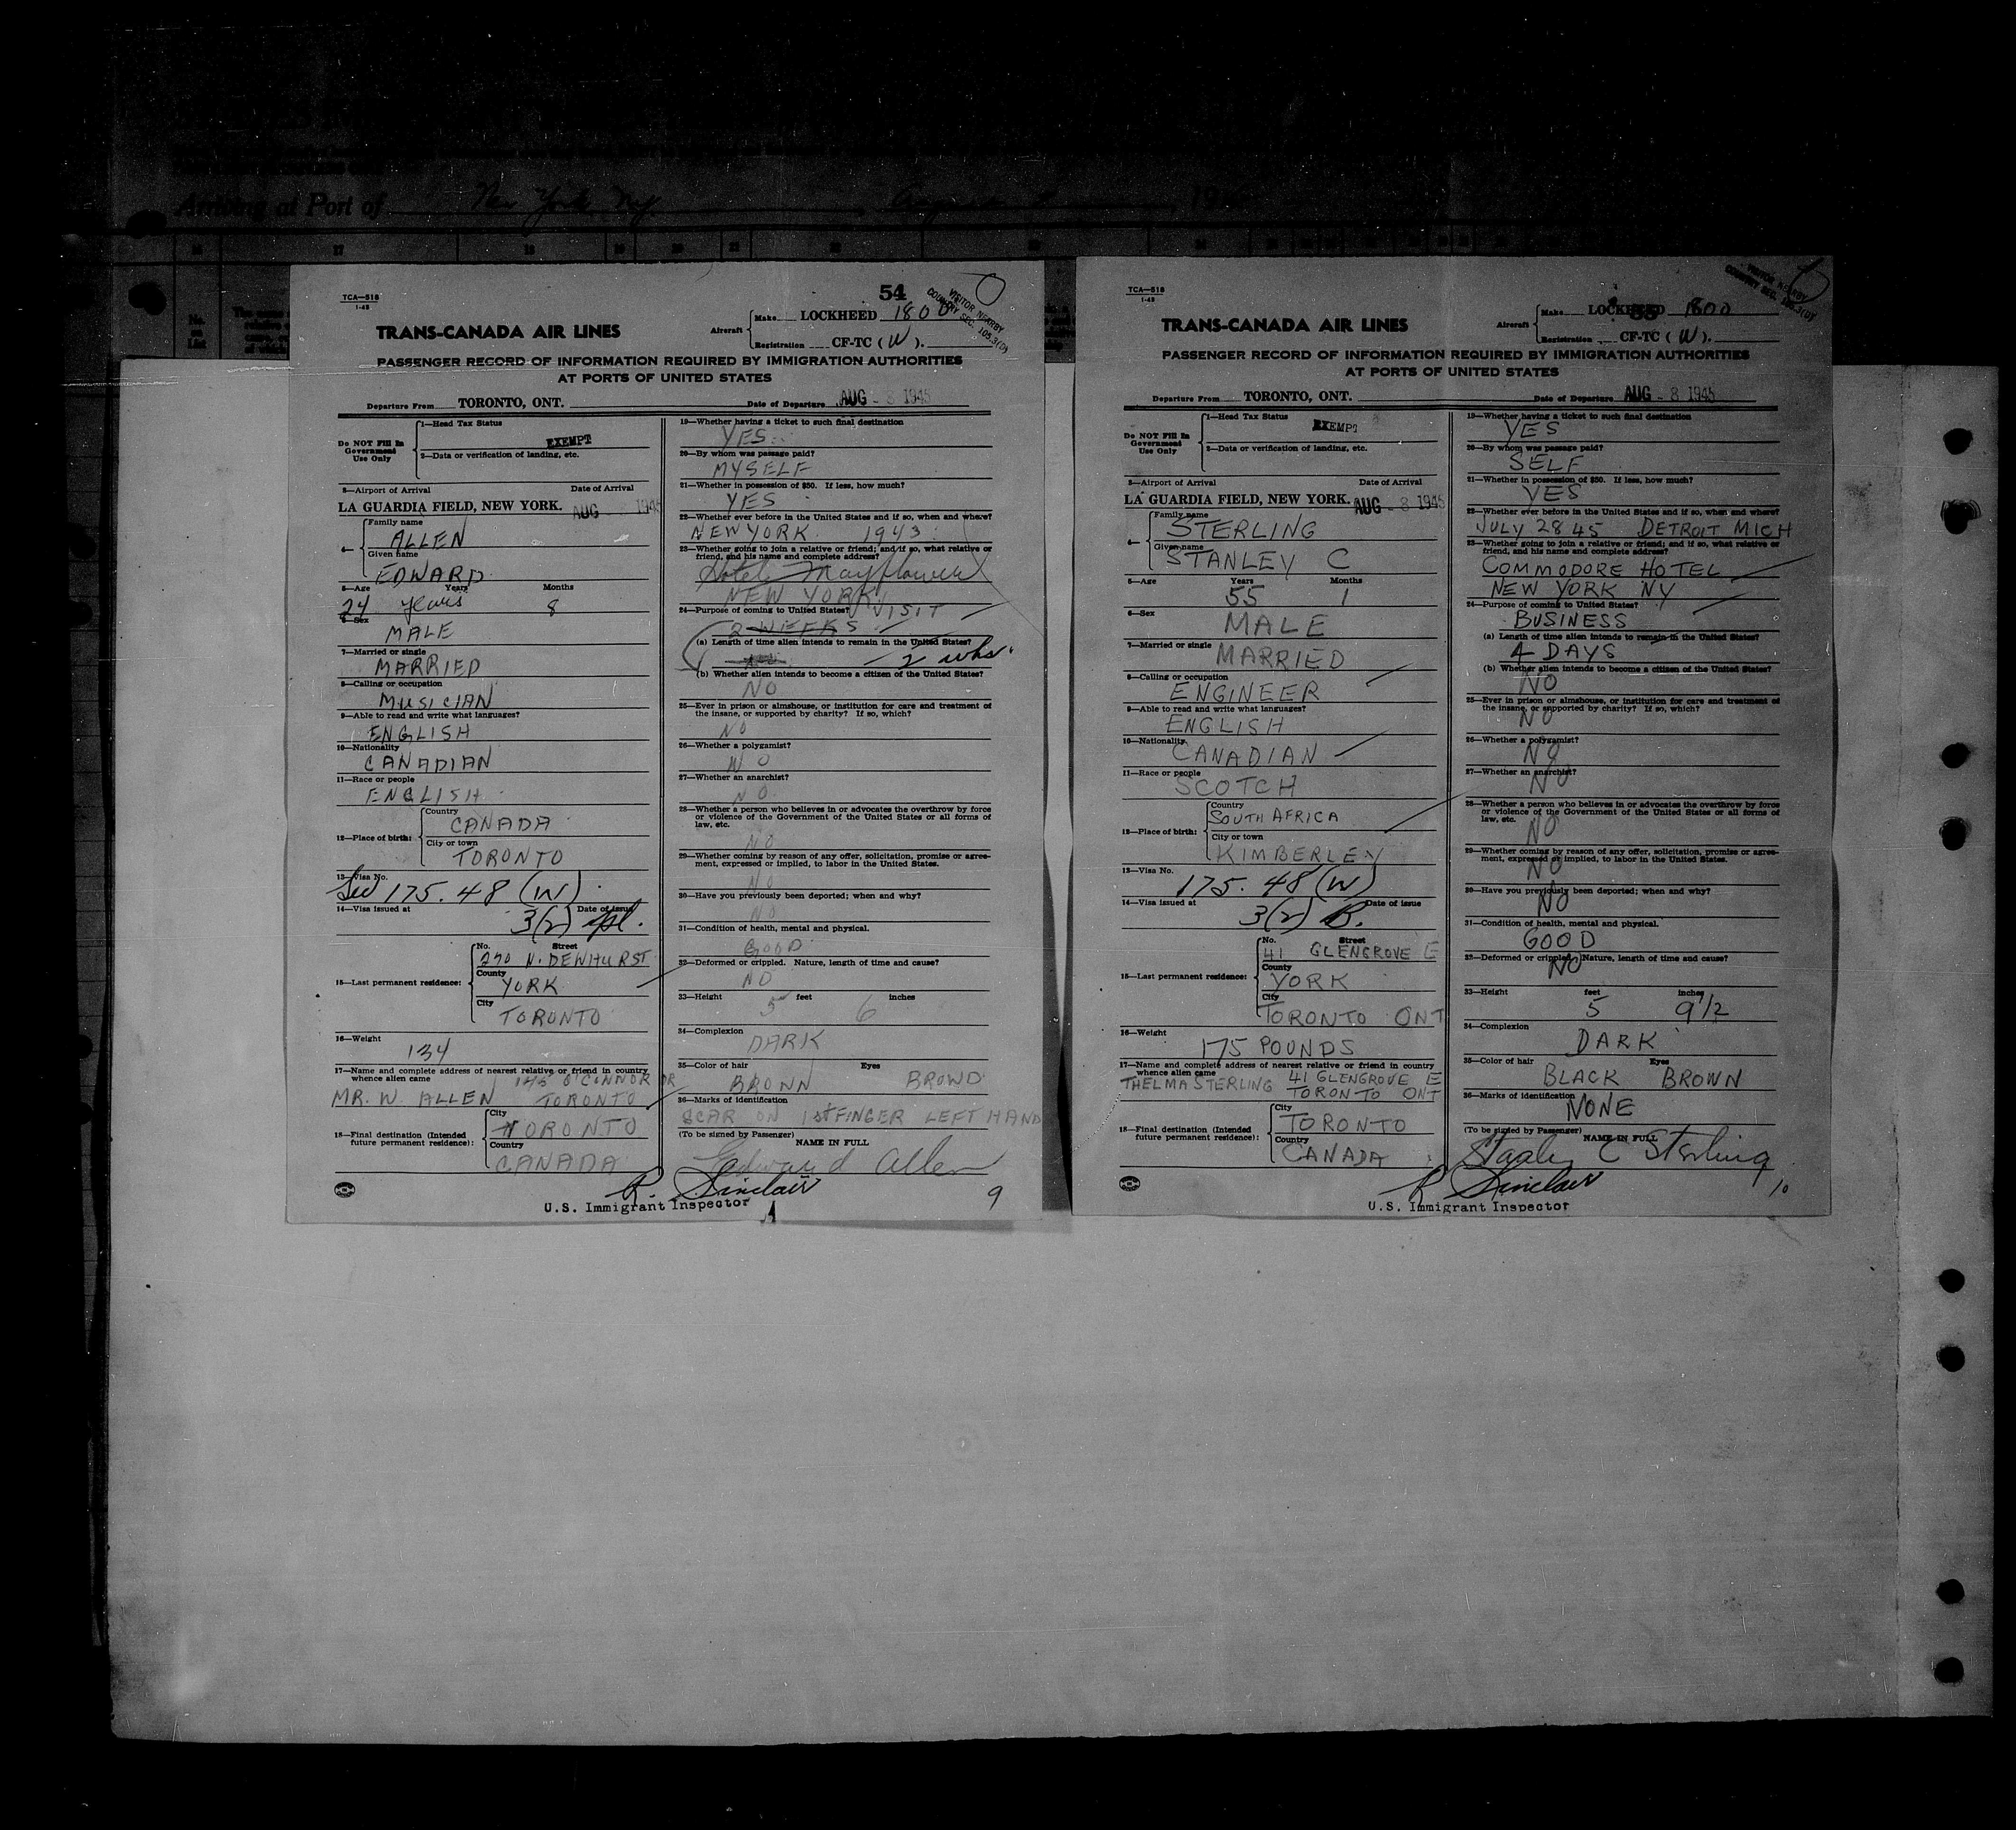 Arriving at Port of New York, N.Y.
16 17 18
TCA—518
1-45
54
VISITOR NEARBY
COUNTRY SEC. 105.3(D)
TRANS-CANADA AIR LINES
Aircraft
Make LOCKHEED 1800
Registration CF-TC (W).
PASSENGER RECORD OF INFORMATION REQUIRED BY IMMIGRATION AUTHORITIES
AT PORTS OF UNITED STATES
Departure From TORONTO, ONT. Date of Departure AUG - 8 1945
Do NOT Fill In
Government
Use Only
1—Head Tax Status
EXEMPT
2—Data or verification of landing, etc.
3—Airport of Arrival Date of Arrival
LA GUARDIA FIELD, NEW YORK. AUG 1945
4—
Family name
ALLEN
Given name
EDWARD
5—Age Years Months
24 years 8
6—Sex
MALE
7—Married or single
MARRIED
8—Calling or occupation
MUSICIAN
9—Able to read and write what languages?
ENGLISH
10—Nationality
CANADIAN
11—Race or people
ENGLISH
12—Place of birth:
Country
CANADA
City or town
TORONTO
13—Visa No.
175.48 (W)
14—Visa issued at Date of issue
3(2)
15—Last permanent residence:
No. Street
270 N. DEWHURST
County
YORK
City
TORONTO
16—Weight
134
17—Name and complete address of nearest relative or friend in country
whence alien came 145 O'CONNOR DR
MR. W. ALLEN TORONTO
18—Final destination (Intended
future permanent residence):
City
TORONTO
Country
CANADA
19—Whether having a ticket to such final destination
YES
20—By whom was passage paid?
MYSELF
21—Whether in possession of $50. If less, how much?
YES
22—Whether ever before in the United States and if so, when and where?
NEW YORK 1943
23—Whether going to join a relative or friend; and if so, what relative or
friend, and his name and complete address?
Hotel Mayflower
NEW YORK
24—Purpose of coming to United States? VISIT
2 WEEKS
(a) Length of time alien intends to remain in the United States?
2 wks.
(b) Whether alien intends to become a citizen of the United States?
NO
25—Ever in prison or almshouse, or institution for care and treatment of
the insane, or supported by charity? If so, which?
NO
26—Whether a polygamist?
NO
27—Whether an anarchist?
NO
28—Whether a person who believes in or advocates the overthrow by force
or violence of the Government of the United States or all forms of
law, etc.
NO
29—Whether coming by reason of any offer, solicitation, promise or agree-
ment, expressed or implied, to labor in the United States.
NO
30—Have you previously been deported; when and why?
NO
31—Condition of health, mental and physical.
GOOD
32—Deformed or crippled. Nature, length of time and cause?
NO
33—Height feet inches
5 6
34—Complexion
DARK
35—Color of hair Eyes
BROWN BROWD
36—Marks of identification
SCAR ON 1st FINGER LEFT HAND
(To be signed by Passenger)
NAME IN FULL
Edward Allen
R. Sinclair
U.S. Immigrant Inspector
9
TCA—518
1-45
55
VISITOR NEARBY
COUNTRY SEC. 105.3(D)
TRANS-CANADA AIR LINES
Aircraft
Make LOCKHEED 1800
Registration CF-TC (W).
PASSENGER RECORD OF INFORMATION REQUIRED BY IMMIGRATION AUTHORITIES
AT PORTS OF UNITED STATES
Departure From TORONTO, ONT. Date of Departure AUG - 8 1945
Do NOT Fill In
Government
Use Only
1—Head Tax Status
EXEMPT
2—Data or verification of landing, etc.
3—Airport of Arrival Date of Arrival
LA GUARDIA FIELD, NEW YORK. AUG - 8 1945
4—
Family name
STERLING
Given name
STANLEY C
5—Age Years Months
55 1
6—Sex
MALE
7—Married or single
MARRIED
8—Calling or occupation
ENGINEER
9—Able to read and write what languages?
ENGLISH
10—Nationality
CANADIAN
11—Race or people
SCOTCH
12—Place of birth:
Country
SOUTH AFRICA
City or town
KIMBERLEY
13—Visa No.
175.48 (W)
14—Visa issued at Date of issue
3(2)
15—Last permanent residence:
No. Street
41 GLENGROVE E
County
YORK
City
TORONTO ONT
16—Weight
175 POUNDS
17—Name and complete address of nearest relative or friend in country
whence alien came
THELMA STERLING 41 GLENGROVE E
TORONTO ONT
18—Final destination (Intended
future permanent residence):
City
TORONTO
Country
CANADA
19—Whether having a ticket to such final destination
YES
20—By whom was passage paid?
SELF
21—Whether in possession of $50. If less, how much?
YES
22—Whether ever before in the United States and if so, when and where?
JULY 28 45 DETROIT MICH
23—Whether going to join a relative or friend; and if so, what relative or
friend, and his name and complete address?
COMMODORE HOTEL
NEW YORK NY
24—Purpose of coming to United States?
BUSINESS
(a) Length of time alien intends to remain in the United States?
4 DAYS
(b) Whether alien intends to become a citizen of the United States?
NO
25—Ever in prison or almshouse, or institution for care and treatment of
the insane, or supported by charity? If so, which?
NO
26—Whether a polygamist?
NO
27—Whether an anarchist?
NO
28—Whether a person who believes in or advocates the overthrow by force
or violence of the Government of the United States or all forms of
law, etc.
NO
29—Whether coming by reason of any offer, solicitation, promise or agree-
ment, expressed or implied, to labor in the United States.
NO
30—Have you previously been deported; when and why?
NO
31—Condition of health, mental and physical.
GOOD
32—Deformed or crippled. Nature, length of time and cause?
NO
33—Height feet inches
5 9 1/2
34—Complexion
DARK
35—Color of hair Eyes
BLACK BROWN
36—Marks of identification
NONE
(To be signed by Passenger)
NAME IN FULL
Stanley C Sterling
R Sinclair
U.S. Immigrant Inspector
10